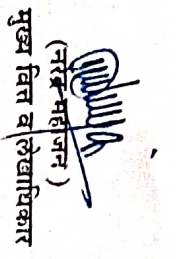 महाजन )
मुख्य वित्त व लेखाधिकार